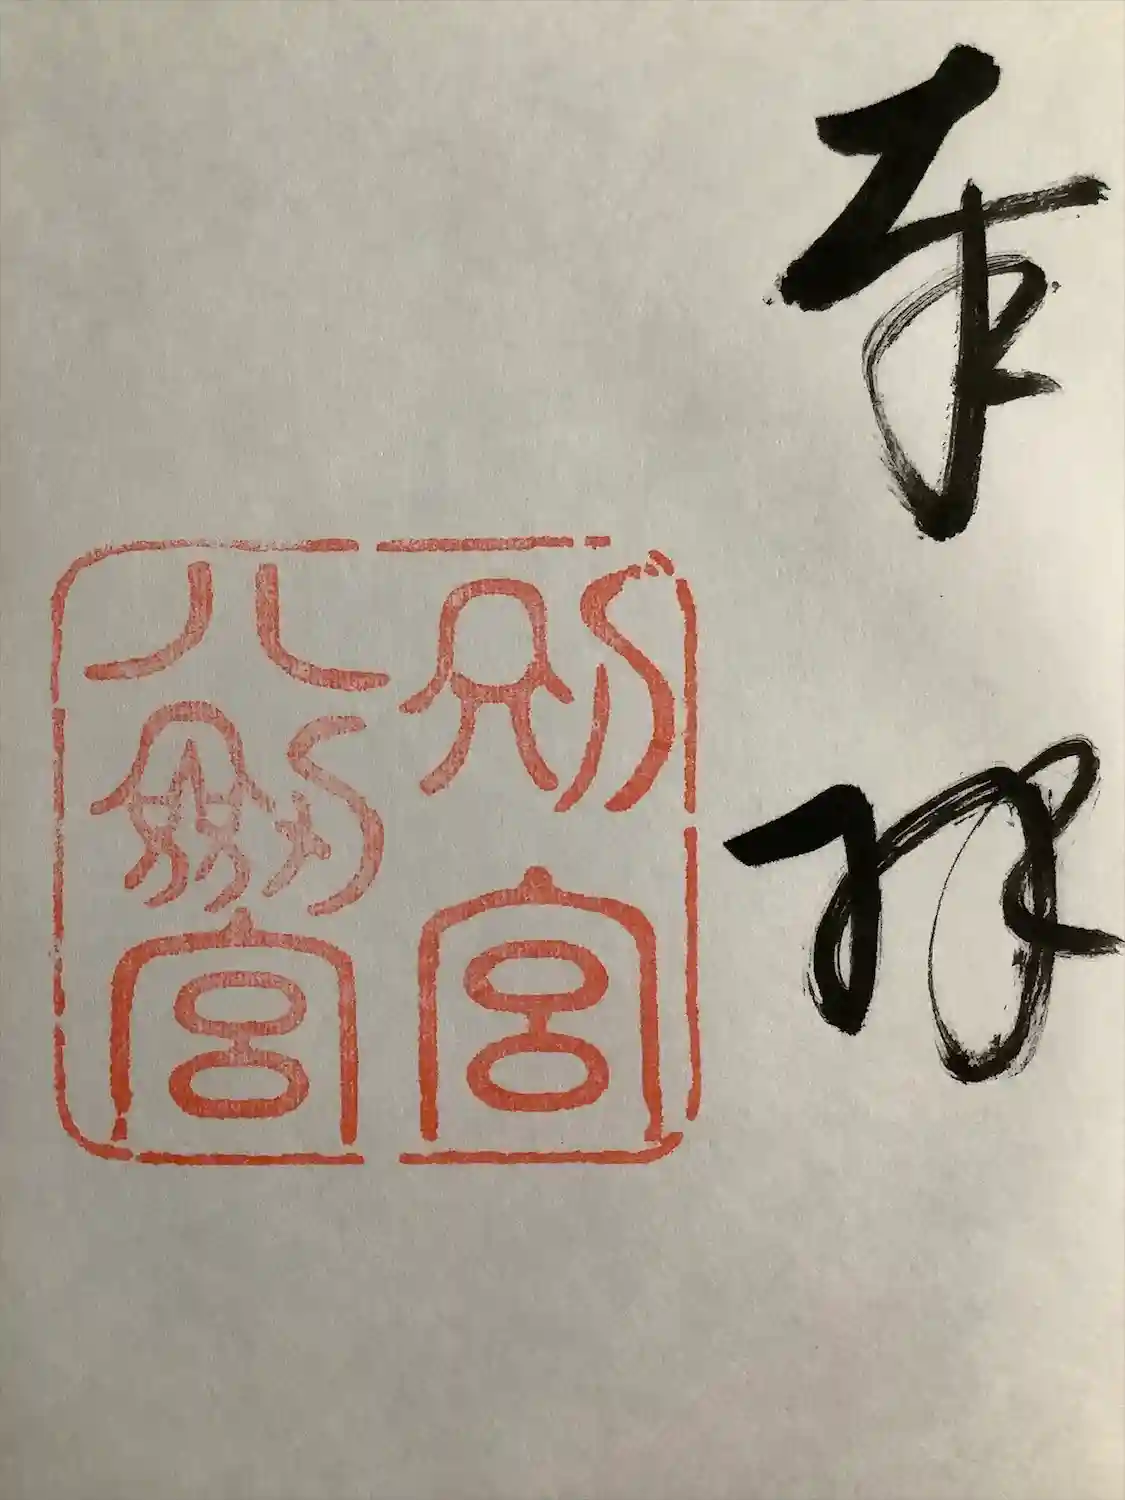 奉拝
別宮
八劔宮